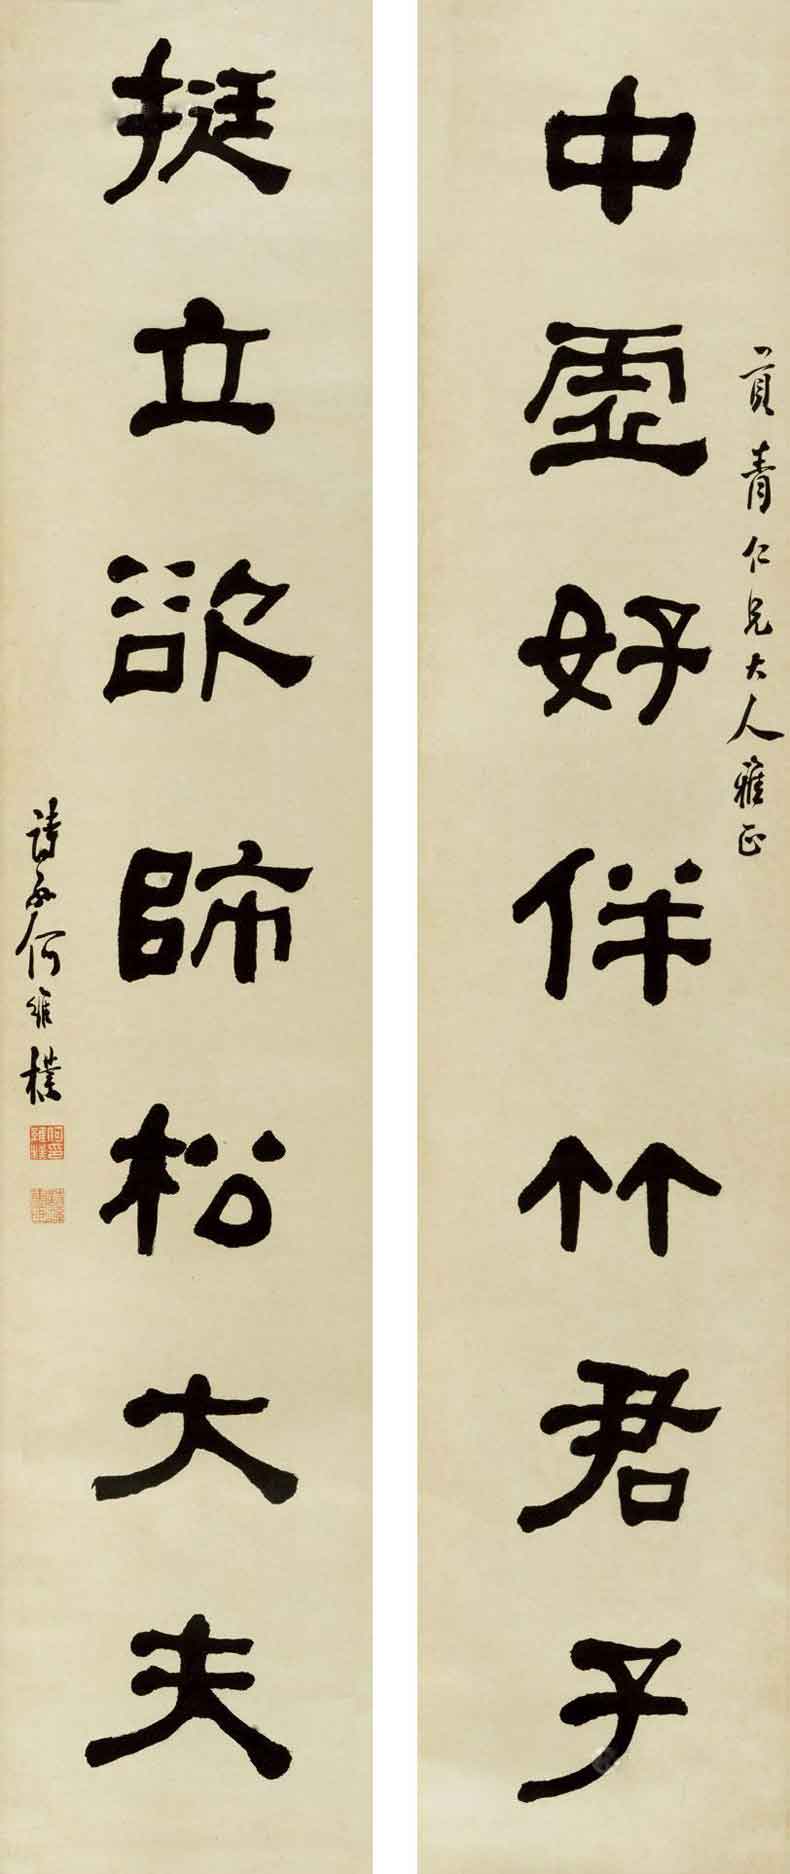 中虛好伴竹君子
青仁兄大人雅正
挺立欲師松大夫
詩孫何維樸